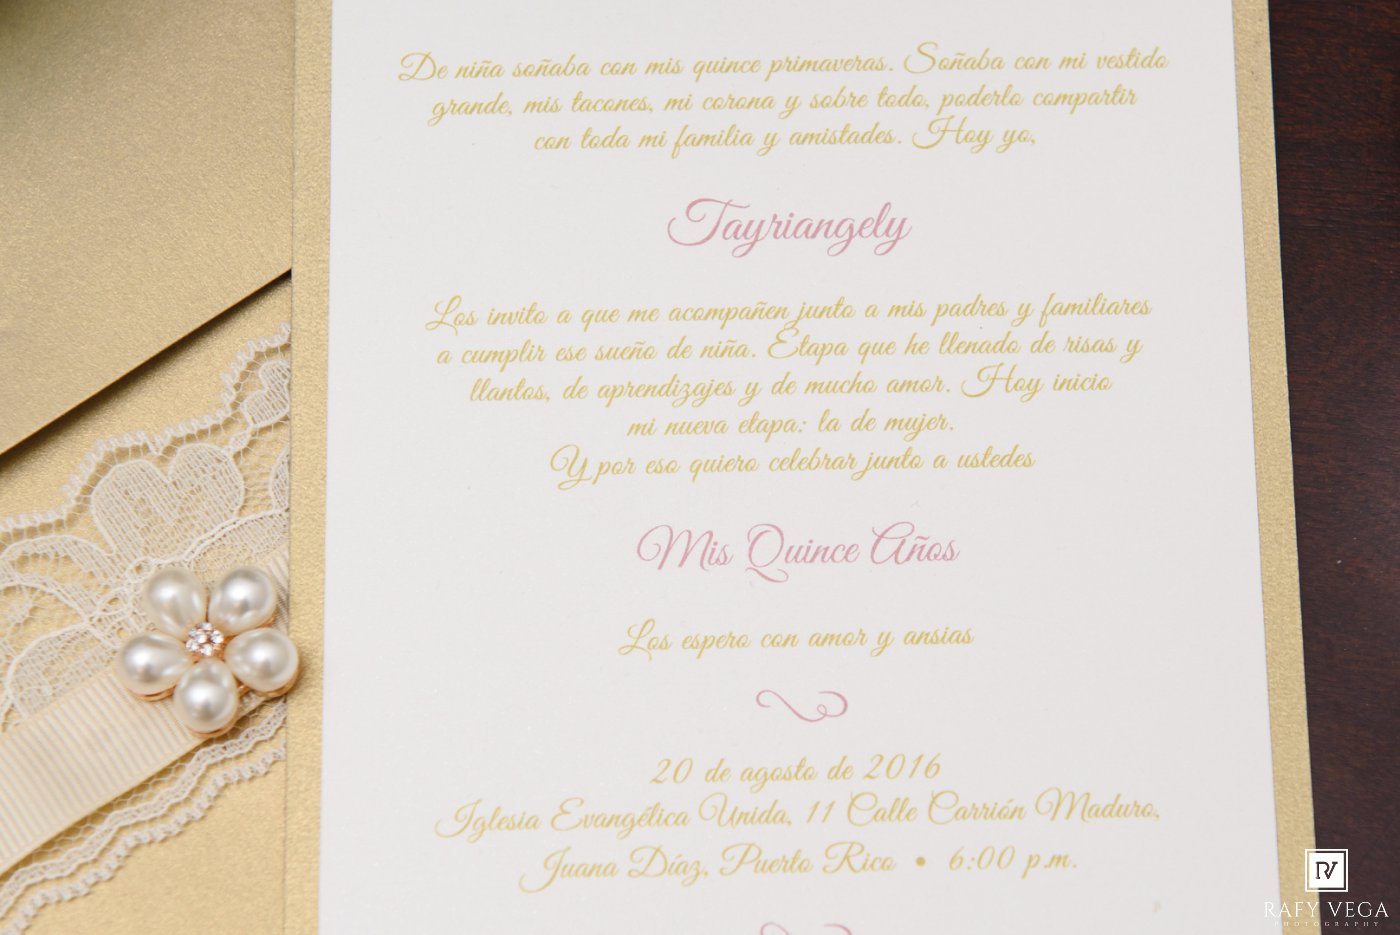 De niña soñaba con mis quince primaveras. Soñaba con mi vestido
grande, mis tacones, mi corona y sobre todo, poderlo compartir
con toda mi familia y amistades. Hoy yo,
Tayriangely
Los invito a que me acompañen junto a mis padres y familiares
a cumplir ese sueño de niña. Etapa que he llenado de risas y
llantos, de aprendizajes y de mucho amor. Hoy inicio
mi nueva etapa: la de mujer.
Y por eso quiero celebrar junto a ustedes
Mis Quince Años
Los espero con amor y ansias
20 de agosto de 2016
Iglesia Evangélica Unida, 11 Calle Carrión Maduro,
Juana Díaz, Puerto Rico • 6:00 p.m.
RV
RAFY VEGA
PHOTOGRAPHY